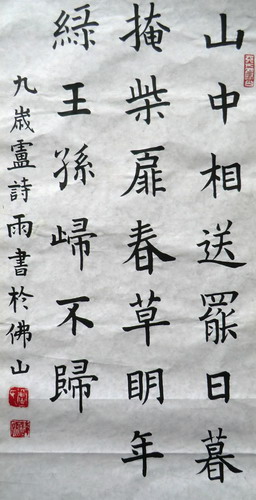 山中相送罷日暮
掩柴扉春草明年
綠王孫歸不歸
九歲盧詩雨書於佛山